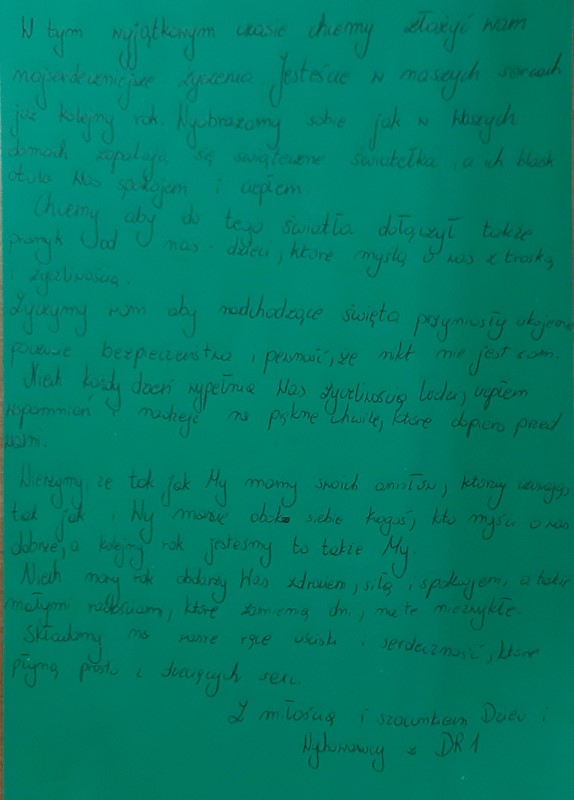 W tym wyjątkowym czasie chcemy złożyć wam
najserdeczniejsze życzenia Jesteście w naszych sercach
już kolejny rok. Wyobrażamy sobie jak w Waszych
domach zapalają się świąteczne światełka, a ich blask
otula Was spokojem i ciepłem.
Chcemy aby do tego światła dołączył także
promyk od nas - dzieci, które myślą o was z troską
i życzliwością.
Życzymy wam aby nadchodzące święta przyniosły ukojenie
poczucie bezpieczeństwa i pewność, że nikt nie jest sam.
Niech każdy dzień wypełnia Was życzliwością ludzi, ciepłem
wspomnień i nadzieją na piękne chwile, które dopiero przed
wami.
Wierzymy, że tak jak My mamy swoich aniołów, którzy
tak jak i Wy macie obok siebie kogoś, kto myśli o was
dobrze, a kolejny rok jesteśmy to także My.
Niech nowy rok obdarzy Was zdrowiem, siłą i spokojem, a także
małymi radościami, które zamienią dni, na te niezwykłe.
Składamy na wasze ręce uściski i serdeczność, które
płyną prosto z dziecięcych serc.
Z miłością i szacunkiem Dzieci i
Wychowawcy z DR1